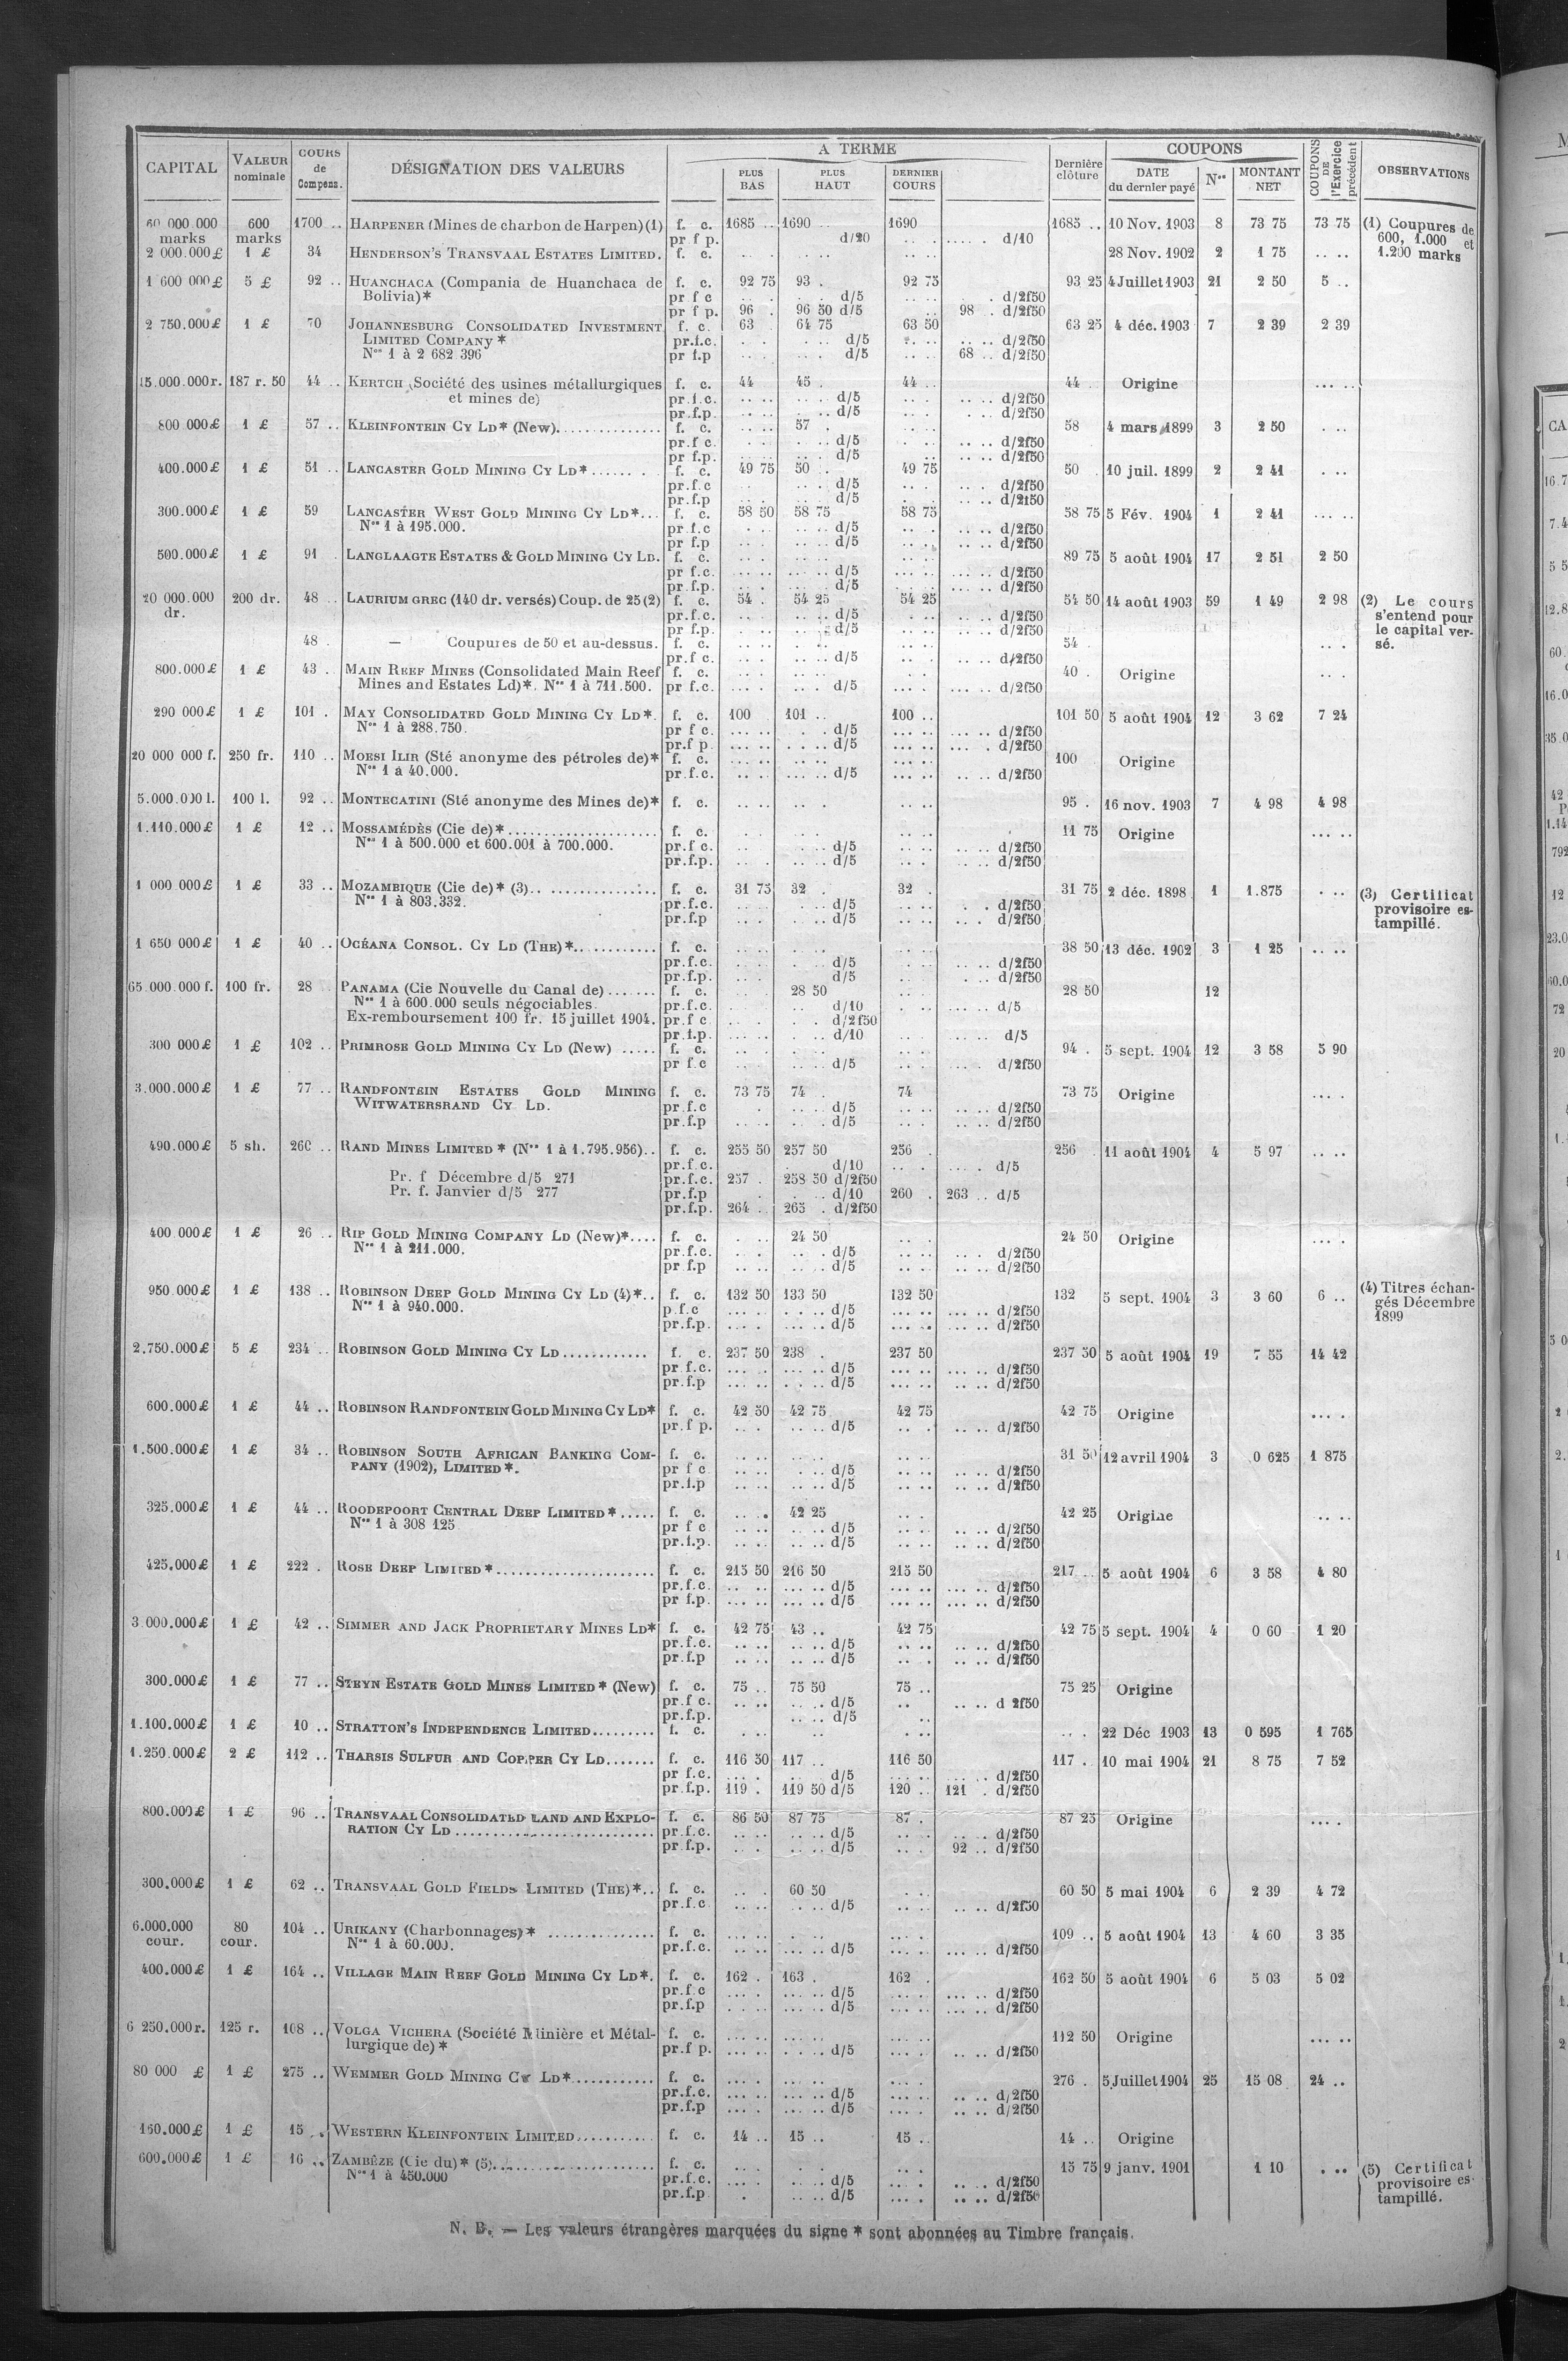 CAPITAL | VALEUR nominale | COURS de Compens. | DÉSIGNATION DES VALEURS | A TERME | PLUS BAS | PLUS HAUT | DERNIER COURS | Dernière clôture | COUPONS | DATE du dernier payé | Nos | MONTANT NET | COUPONS DE l'Exercice précédent | OBSERVATIONS
60 000.000 marks | 600 marks | 1700 .. | HARPENER (Mines de charbon de Harpen) (1) | f. c. | 1685 .. | 1690 | 1690 | 1685 .. | 10 Nov. 1903 | 8 | 73 75 | 73 75 | (1) Coupures de
pr f p. | d/20 | d/10 | 600, 1.000 et
2 000.000 £ | 1 £ | 34 | HENDERSON'S TRANSVAAL ESTATES LIMITED. | f. c. | 28 Nov. 1902 | 2 | 1 75 | .. .. | 1.200 marks
1 600 000 £ | 5 £ | 92 .. | HUANCHACA (Compania de Huanchaca de | f. c. | 92 75 | 93 . | 92 75 | 93 25 | 4 Juillet 1903 | 21 | 2 50 | 5 ..
Bolivia)* | pr f c | d/5 | d/2f50
pr f p. | 96 . | 96 50 d/5 | 98 . d/2f50
2 750.000 £ | 1 £ | 70 | JOHANNESBURG CONSOLIDATED INVESTMENT | f. c. | 63 | 64 75 | 63 50 | 63 25 | 4 déc. 1903 | 7 | 2 39 | 2 39
LIMITED COMPANY * | pr.f.c. | d/5 | d/2f50
Nos 1 à 2 682 396 | pr f.p | d/5 | 68 .. d/2f50
15.000.000 r. | 187 r. 50 | 44 .. | KERTCH (Société des usines métallurgiques | f. c. | 44 | 45 . | 44 .. | 44 . | Origine | ... ..
et mines de) | pr.f.c. | d/5 | d/2f50
pr.f.p. | d/5 | d/2f50
800 000 £ | 1 £ | 57 .. | KLEINFONTEIN CY LD* (New)............... | f. c. | 57 . | 58 | 4 mars 1899 | 3 | 2 50 | . ..
pr.f c. | d/5 | d/2f50
pr f.p. | d/5 | d/2f50
400.000 £ | 1 £ | 51 .. | LANCASTER GOLD MINING CY LD*...... . | f. c. | 49 75 | 50 . | 49 75 | 50 . | 10 juil. 1899 | 2 | 2 41 | . ..
pr.f.c | d/5 | d/2f50
pr.f.p | d/5 | d/2f50
300.000 £ | 1 £ | 59 | LANCASTER WEST GOLD MINING CY LD*... | f. c. | 58 50 | 58 75 | 58 75 | 58 75 | 5 Fév. 1904 | 1 | 2 41 | ... ..
Nos 1 à 195.000. | pr.f.c | d/5 | d/2f50
pr f.p | d/5 | d/2f50
500.000 £ | 1 £ | 91 . | LANGLAAGTE ESTATES & GOLD MINING CY LD. | f. c. | 89 75 | 5 août 1904 | 17 | 2 51 | 2 50
pr f.c. | d/5 | d/2f50
pr f.p. | d/5 | d/2f50
20 000.000 dr. | 200 dr. | 48 .. | LAURIUM GREC (140 dr. versés) Coup. de 25 (2) | f. c. | 54 . | 54 25 | 54 25 | 54 50 | 14 août 1903 | 59 | 1 49 | 2 98 | (2) Le cours
pr.f.c. | d/5 | d/2f50 | s'entend pour
pr f.p. | d/5 | d/2f50 | le capital ver-
48 . | — Coupures de 50 et au-dessus. | f. c. | 54 . | sé.
pr.f c. | d/5 | d/2f50
800.000 £ | 1 £ | 43 . | MAIN REEF MINES (Consolidated Main Reef | f. c. | 40 . | Origine | . ..
Mines and Estates Ld)*. Nos 1 à 711.500. | pr f.c. | d/5 | d/2f50
290 000 £ | 1 £ | 101 . | MAY CONSOLIDATED GOLD MINING CY LD*. | f. c. | 100 | 101 .. | 100 .. | 101 50 | 5 août 1904 | 12 | 3 62 | 7 24
Nos 1 à 288.750. | pr f c. | d/5 | d/2f50
pr.f p. | d/5 | d/2f50
20 000 000 f. | 250 fr. | 110 .. | MOESI ILIR (Sté anonyme des pétroles de)* | f. c. | 100 | Origine
Nos 1 à 40.000. | pr.f.c. | d/5 | d/2f50
5.000.000 l. | 100 l. | 92 .. | MONTECATINI (Sté anonyme des Mines de)* | f. c. | 95 . | 16 nov. 1903 | 7 | 4 98 | 4 98
1.110.000 £ | 1 £ | 12 .. | MOSSAMÉDÈS (Cie de)*..................... | f. c. | 11 75 | Origine | ... ..
Nos 1 à 500.000 et 600.001 à 700.000. | pr.f c. | d/5 | d/2f50
pr.f.p. | d/5 | d/2f50
1 000 000 £ | 1 £ | 33 .. | MOZAMBIQUE (Cie de)* (3).. ............... | f. c. | 31 75 | 32 . | 32 . | 31 75 | 2 déc. 1898 | 1 | 1.875 | . .. | (3) Certificat
Nos 1 à 803.332. | pr.f.c. | d/5 | d/2f50 | provisoire es-
pr.f.p | d/5 | d/2f50 | tampillé.
1 650 000 £ | 1 £ | 40 .. | OCÉANA CONSOL. CY LD (THE)*............ | f. c. | 38 50 | 13 déc. 1902 | 3 | 1 25 | .. ..
pr.f.c. | d/5 | d/2f50
pr.f.p. | d/5 | d/2f50
65.000.000 f. | 100 fr. | 28 | PANAMA (Cie Nouvelle du Canal de)....... | f. c. | 28 50 | 28 50 | 12
Nos 1 à 600.000 seuls négociables. | pr.f.c. | d/10 | d/5
Ex-remboursement 100 fr. 15 juillet 1904. | pr.f c | d/2f50
pr.f.p. | d/10 | d/5
300 000 £ | 1 £ | 102 .. | PRIMROSE GOLD MINING CY LD (New) ..... | f. c. | 94 . | 5 sept. 1904 | 12 | 3 58 | 5 90
pr f.c | d/5 | d/2f50
3.000.000 £ | 1 £ | 77 .. | RANDFONTEIN ESTATES GOLD MINING | f. c. | 73 75 | 74 . | 74 | 73 75 | Origine | ... .
WITWATERSRAND CY LD. | pr.f.c | d/5 | d/2f50
pr.f.p | d/5 | d/2f50
490.000 £ | 5 sh. | 260 .. | RAND MINES LIMITED * (Nos 1 à 1.795.956).. | f. c. | 255 50 | 257 50 | 256 . | 256 | 11 août 1904 | 4 | 5 97 | .. ..
pr.f.c. | d/10 | d/5
Pr. f Décembre d/5 271 | pr.f.c. | 257 . | 258 50 d/2f50
Pr. f. Janvier d/5 277 | pr.f.p | d/10 | 260 . | 263 .. d/5
pr.f.p. | 264 . | 265 . d/2f50
400 000 £ | 1 £ | 26 .. | RIP GOLD MINING COMPANY LD (New)*.... | f. c. | 24 50 | 24 50 | Origine | ... .
Nos 1 à 211.000. | pr.f.c. | d/5 | d/2f50
pr f.p | d/5 | d/2f50
950.000 £ | 1 £ | 138 .. | ROBINSON DEEP GOLD MINING CY LD (4)*.. | f. c. | 132 50 | 133 50 | 132 50 | 132 | 5 sept. 1904 | 3 | 3 60 | 6 .. | (4) Titres échan-
Nos 1 à 940.000. | p.f.c | d/5 | d/2f50 | gés Décembre
pr.f.p. | d/5 | d/2f50 | 1899
2.750.000 £ | 5 £ | 234 .. | ROBINSON GOLD MINING CY LD............ | f. c. | 237 50 | 238 . | 237 50 | 237 50 | 5 août 1904 | 19 | 7 55 | 14 42
pr.f.c. | d/5 | d/2f50
pr.f.p | d/5 | d/2f50
600.000 £ | 1 £ | 44 .. | ROBINSON RANDFONTEIN GOLD MINING CY LD* | f. c. | 42 50 | 42 75 | 42 75 | 42 75 | Origine | ... .
pr.f p. | d/5 | d/2f50
1.500.000 £ | 1 £ | 34 .. | ROBINSON SOUTH AFRICAN BANKING COM- | f. c. | 31 50 | 12 avril 1904 | 3 | 0 625 | 1 875
PANY (1902), LIMITED *. | pr f c | d/5 | d/2f50
pr.f.p | d/5 | d/2f50
325.000 £ | 1 £ | 44 .. | ROODEPOORT CENTRAL DEEP LIMITED *..... | f. c. | 42 25 | 42 25 | Origine | .. ..
Nos 1 à 308 125 | pr f c | d/5 | d/2f50
pr.f.p. | d/5 | d/2f50
425.000 £ | 1 £ | 222 . | ROSE DEEP LIMITED *...................... | f. c. | 215 50 | 216 50 | 215 50 | 217 .. | 5 août 1904 | 6 | 3 58 | 4 80
pr.f.c. | d/5 | d/2f50
pr f.p. | d/5 | d/2f50
3.000.000 £ | 1 £ | 42 .. | SIMMER AND JACK PROPRIETARY MINES LD* | f. c. | 42 75 | 43 .. | 42 75 | 42 75 | 5 sept. 1904 | 4 | 0 60 | 1 20
pr.f.c. | d/5 | d/2f50
pr.f.p | d/5 | d/2f50
300.000 £ | 1 £ | 77 .. | STEYN ESTATE GOLD MINES LIMITED * (New) | f. c. | 75 .. | 75 50 | 75 .. | 75 25 | Origine
pr.f c. | d/5 | d 2f50
pr.f.p. | d/5
1.100.000 £ | 1 £ | 10 .. | STRATTON'S INDEPENDENCE LIMITED......... | f. c. | 22 Déc 1903 | 13 | 0 595 | 1 765
1.250.000 £ | 2 £ | 112 .. | THARSIS SULFUR AND COPPER CY LD....... | f. c. | 116 50 | 117 .. | 116 50 | 117 . | 10 mai 1904 | 21 | 8 75 | 7 52
pr f.c. | d/5 | d/2f50
pr.f.p. | 119 . | 119 50 d/5 | 120 .. | 121 . d/2f50
800.000 £ | 1 £ | 96 .. | TRANSVAAL CONSOLIDATED LAND AND EXPLO- | f. c. | 86 50 | 87 75 | 87 . | 87 25 | Origine | ... .
RATION CY LD............................ | pr.f.c. | d/5 | d/2f50
pr f.p. | d/5 | 92 .. d/2f50
300.000 £ | 1 £ | 62 .. | TRANSVAAL GOLD FIELDS LIMITED (THE)*.. | f. c. | 60 50 | 60 50 | 5 mai 1904 | 6 | 2 39 | 4 72
pr.f.c | d/5 | d/2f50
6.000.000 cour. | 80 cour. | 104 .. | URIKANY (Charbonnages)* ............... | f. c. | 109 .. | 5 août 1904 | 13 | 4 60 | 3 35
Nos 1 à 60.000. | pr.f.c. | d/5 | d/2f50
400.000 £ | 1 £ | 164 .. | VILLAGE MAIN REEF GOLD MINING CY LD*. | f. c. | 162 . | 163 . | 162 . | 162 50 | 5 août 1904 | 6 | 5 03 | 5 02
pr.f.c | d/5 | d/2f50
pr.f.p | d/5 | d/2f50
6 250.000 r. | 125 r. | 108 .. | VOLGA VICHERA (Société Minière et Métal- | f. c. | 112 50 | Origine | ... ..
lurgique de) * | pr.f p. | d/5 | d/2f50
80 000 £ | 1 £ | 275 .. | WEMMER GOLD MINING CY LD*............ | f. c. | 276 . | 5 Juillet 1904 | 25 | 15 08 | 24 ..
pr.f.c. | d/5 | d/2f50
pr.f.p | d/5 | d/2f50
160.000 £ | 1 £ | 15 .. | WESTERN KLEINFONTEIN LIMITED........... | f. c. | 14 .. | 15 .. | 15 .. | 14 .. | Origine
600.000 £ | 1 £ | 16 .. | ZAMBÈZE (Cie du)* (5)....................... | f. c. | 15 75 | 9 janv. 1901 | 1 10 | . .. | (5) Certificat
Nos 1 à 450.000 | pr.f.c. | d/5 | d/2f50 | provisoire es-
pr.f.p | d/5 | d/2f50 | tampillé.
N. B. — Les valeurs étrangères marquées du signe * sont abonnées au Timbre français.